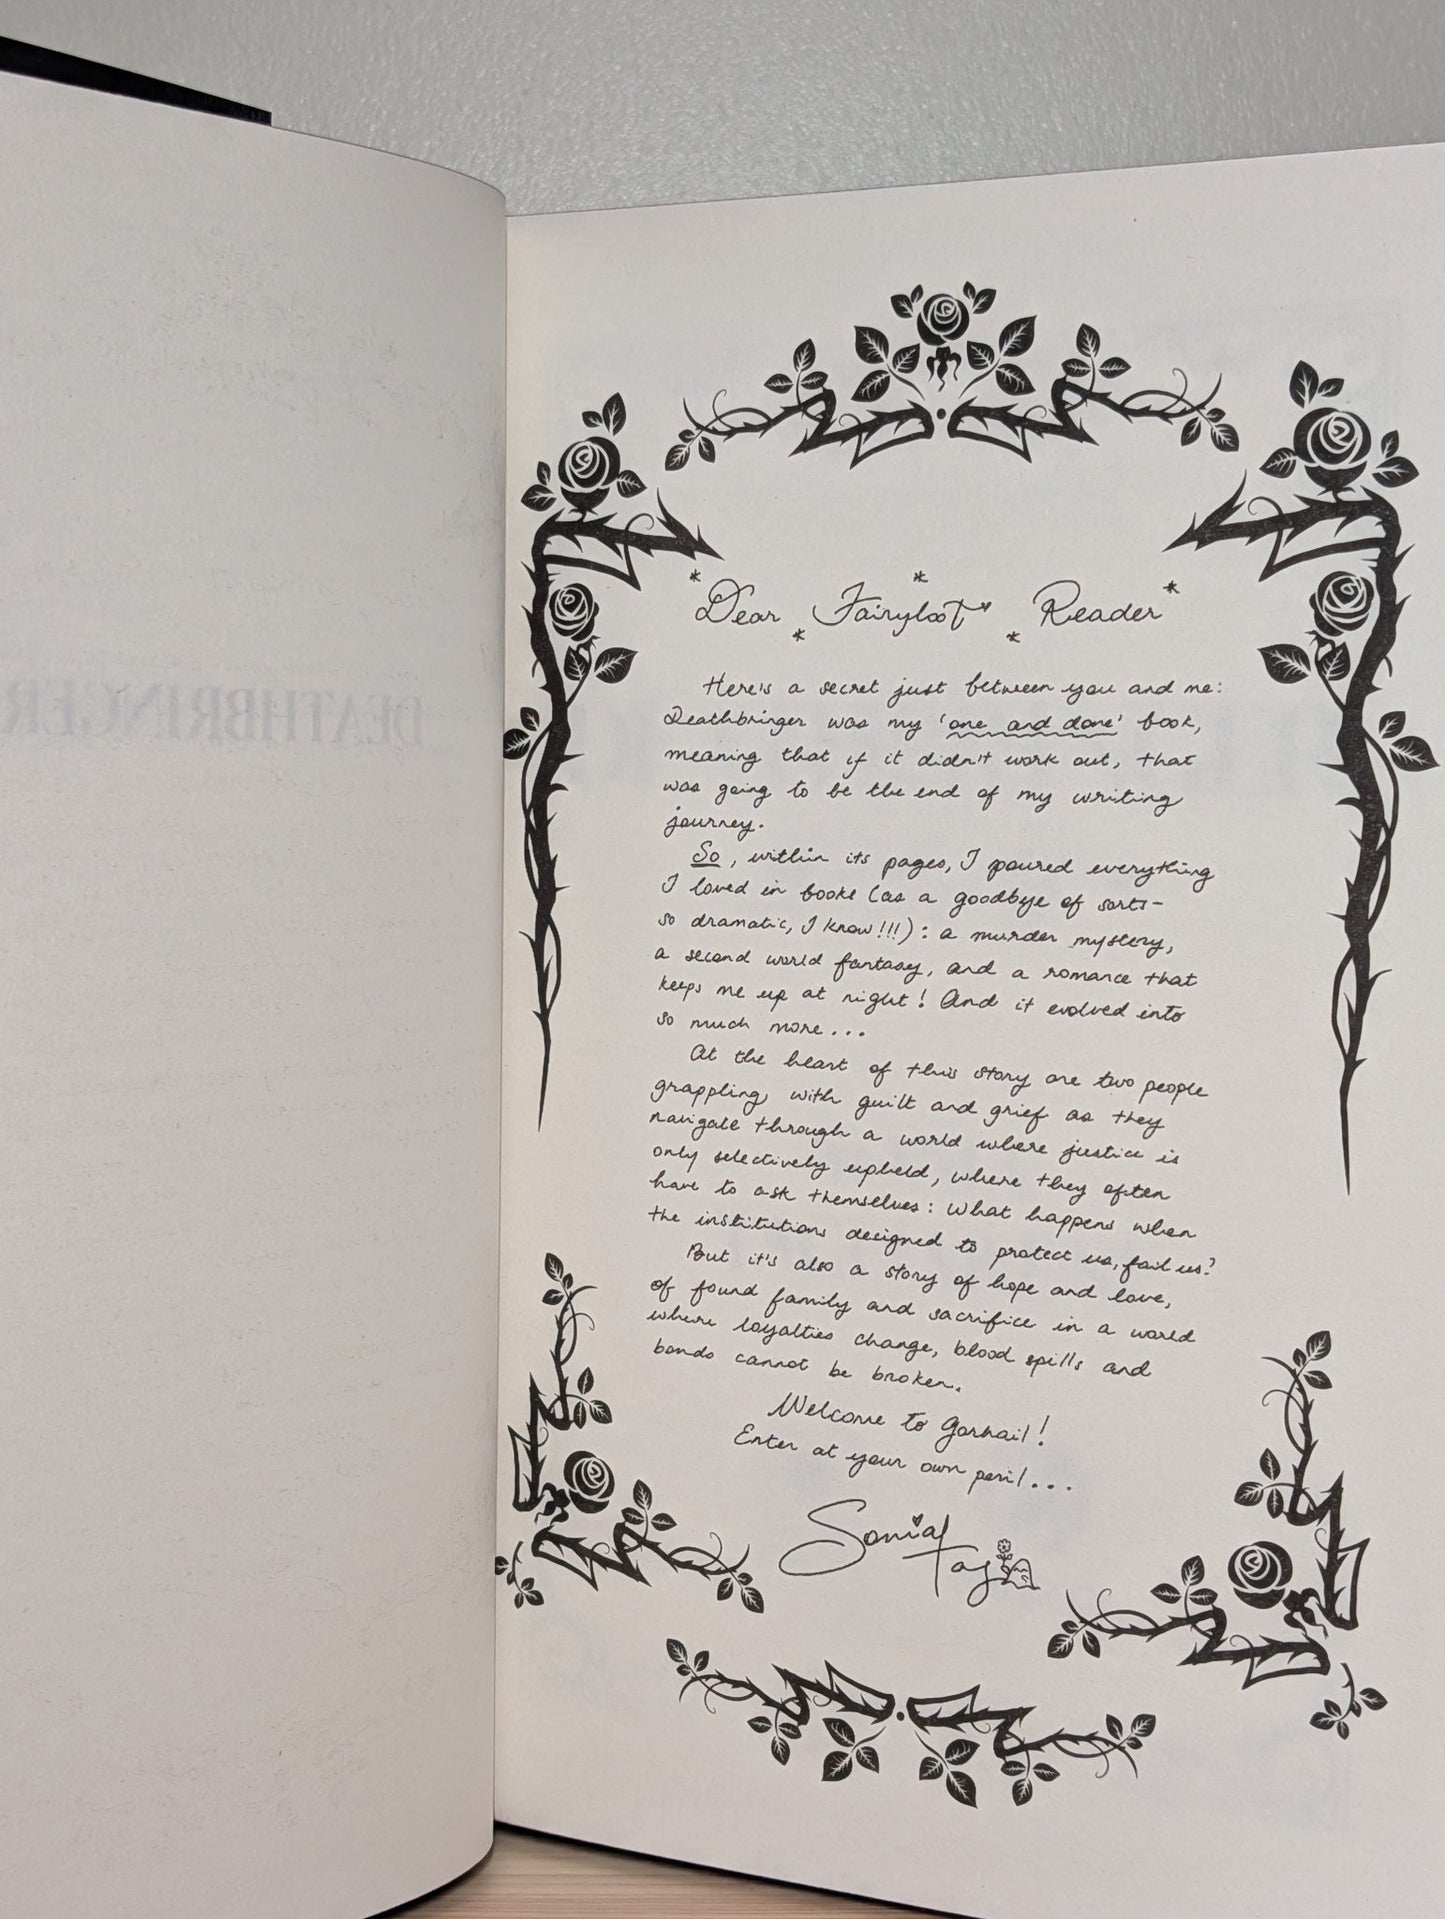 DEATHBRINGER
Dear Fairyloot Reader
Here's a secret just between you and me:
Deathbringer was my 'one and done' book,
meaning that if it didn't work out, that
was going to be the end of my writing
journey.
So, within its pages, I poured everything
I loved in books (as a goodbye of sorts-
so dramatic, I know!!!): a murder mystery,
a second world fantasy, and a romance that
keeps me up at night! And it evolved into
so much more...
At the heart of this story are two people
grappling with guilt and grief as they
navigate through a world where justice is
only selectively upheld, where they often
have to ask themselves: what happens when
the institutions designed to protect us, fail us?
But it's also a story of hope and love,
of found family and sacrifice in a world
where loyalties change, blood spills and
bonds cannot be broken.
Welcome to Gorhail!
Enter at your own peril...
Sonia
Tagliareni